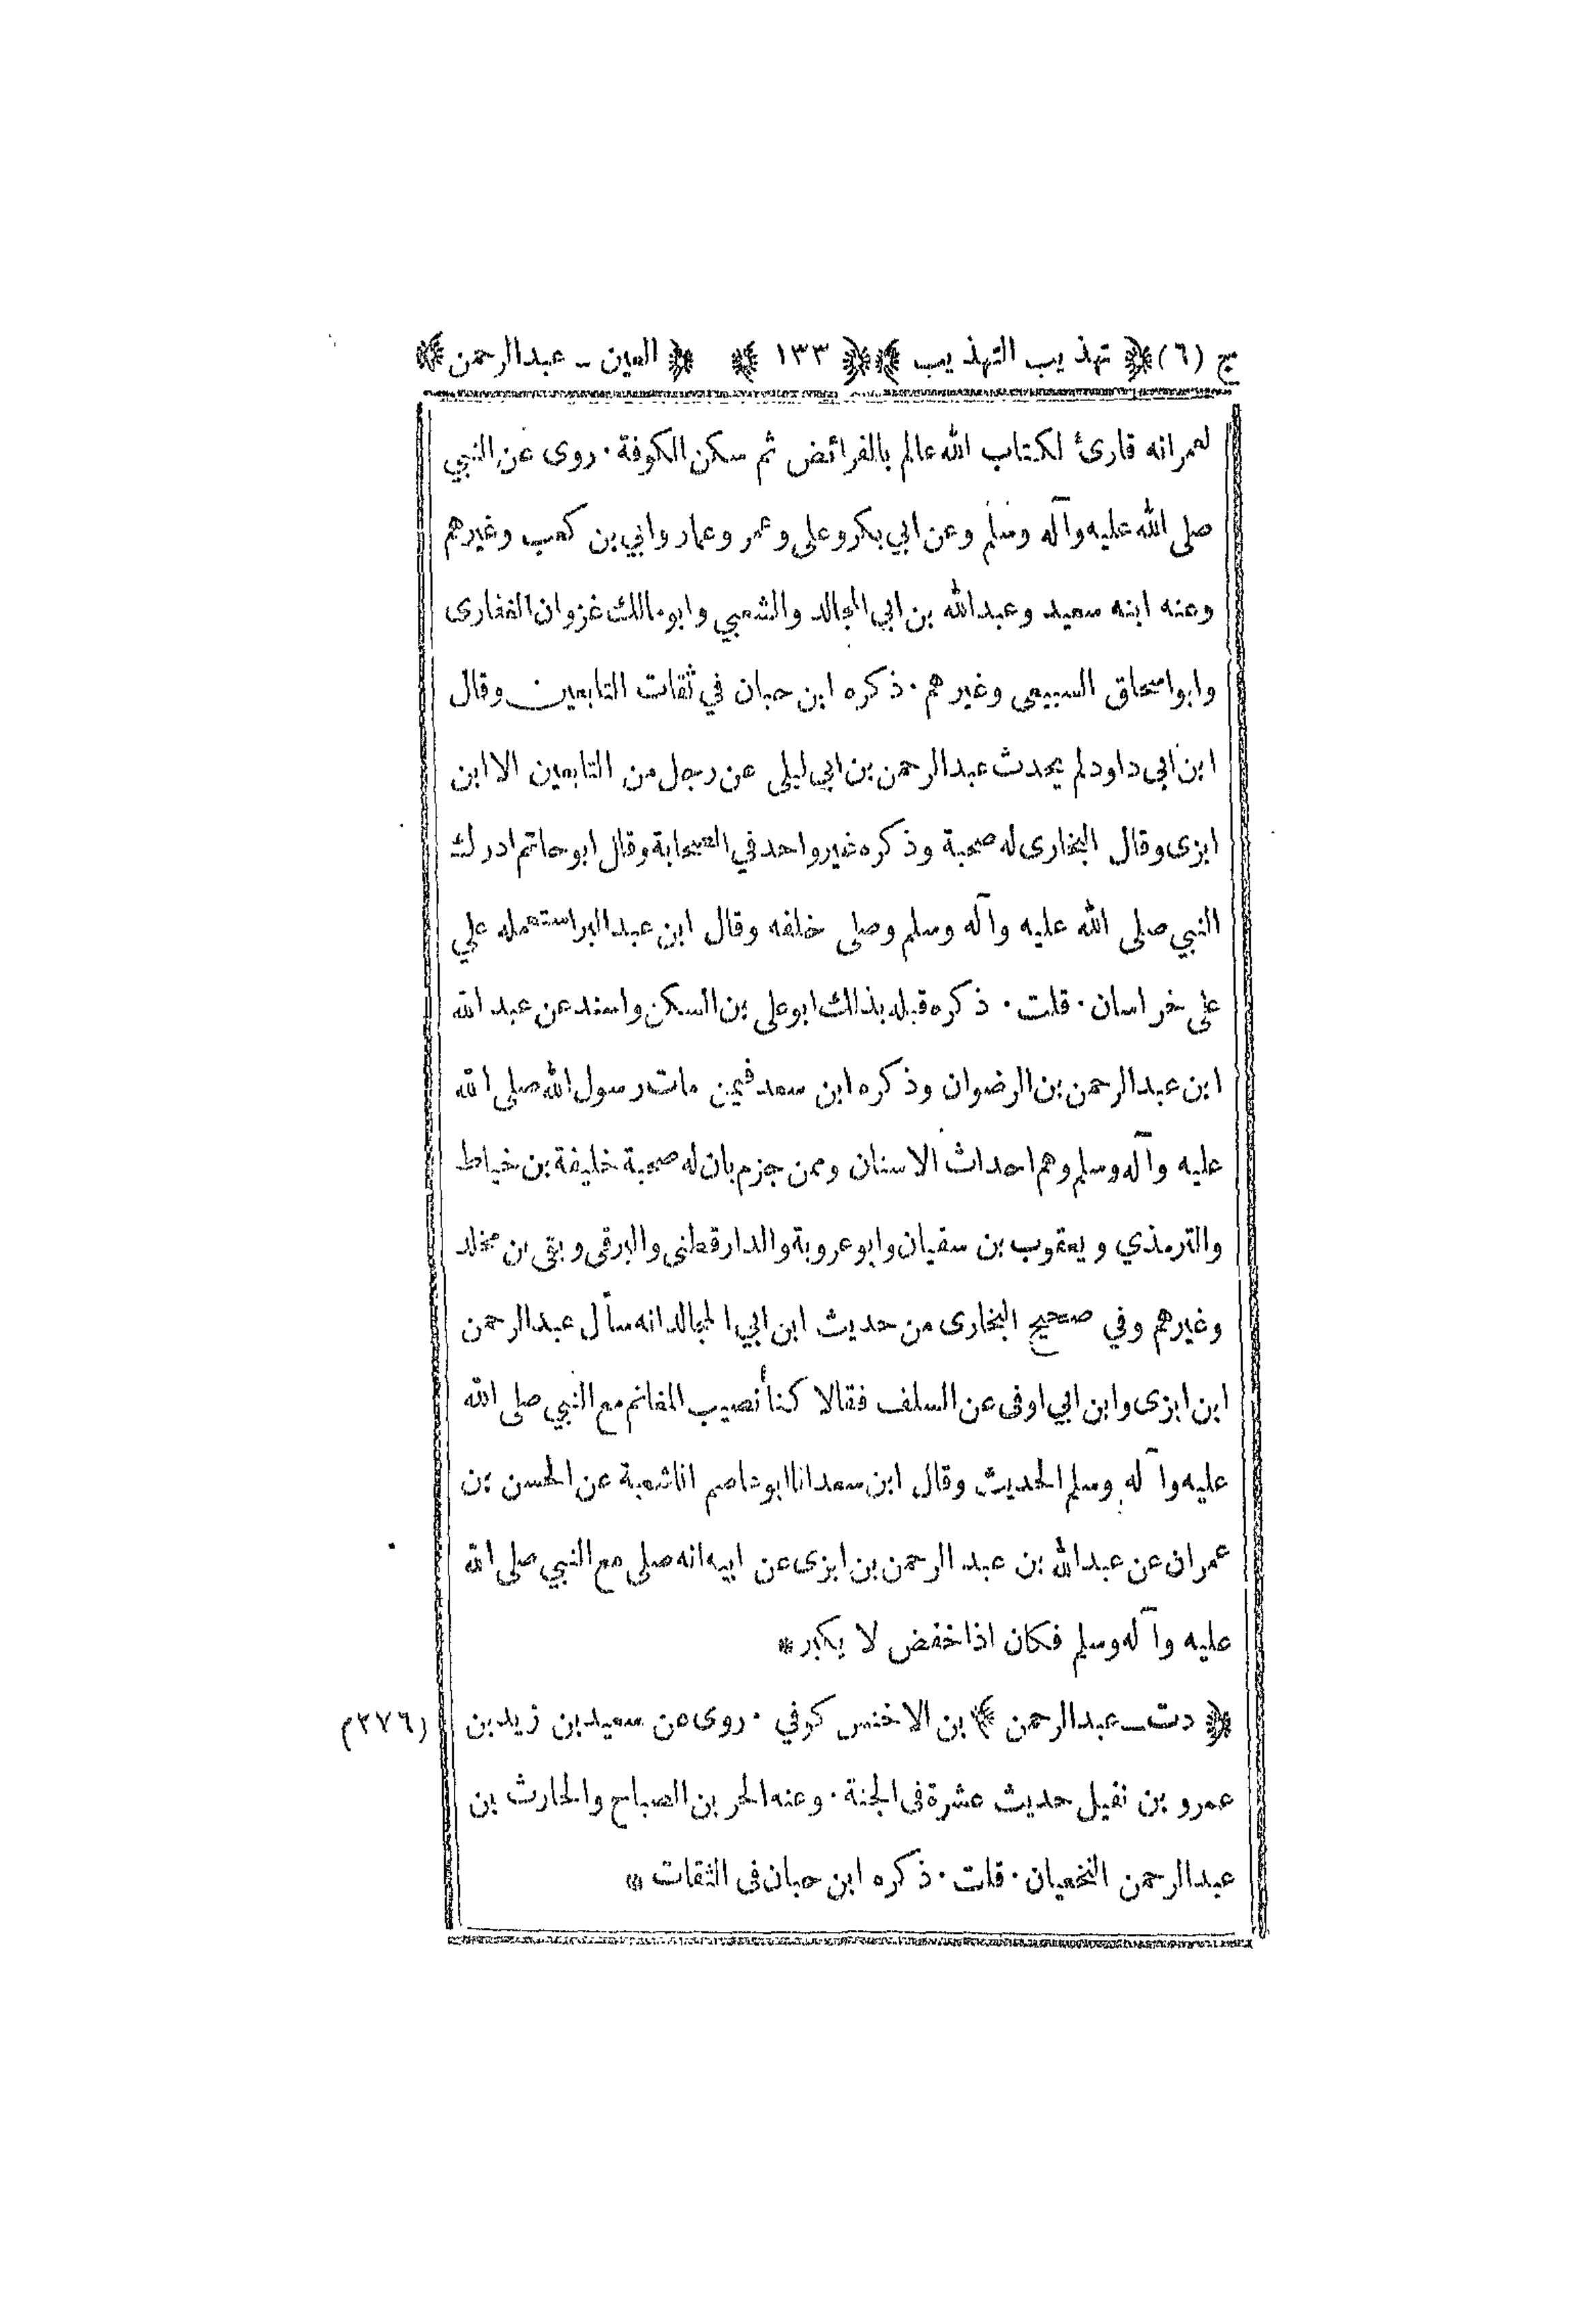 ج (٦) ﴿ تهذيب التهذيب ﴾ ﴿ ١٣٣ ﴾ ﴿ العين ـ عبدالرحمن ﴾
لعمر انه قارئ لكتاب الله عالم بالفرائض ثم سكن الكوفة ٠ روى عن النبي
صلى الله عليه وآله وسلم وعن ابي بكر وعلى وعمر وعمار وابي بن كعب وغيرهم
وعنه ابنه سعيد وعبدالله بن ابي المجالد والشعبي وابو مالك غزوان الغفارى
وابو اسحاق السبيعى وغيرهم ٠ ذكره ابن حبان في ثقات التابعين وقال
ابن ابي داود لم يحدث عبدالرحمن بن ابي ليلى عن رجل من التابعين الا ابن
ابزى وقال البخارى له صحبة وذكره غير واحد في الصحابة وقال ابو حاتم ادرك
النبي صلى الله عليه وآله وسلم وصلى خلفه وقال ابن عبدالبر استعمله علي
على خراسان ٠ قلت ٠ ذكره قبله بذلك ابو على بن السكن واسند عن عبد الله
ابن عبدالرحمن بن الرضوان وذكره ابن سعد فيمن مات رسول الله صلى الله
عليه وآله وسلم وهم احداث الاسنان وممن جزم بان له صحبة خليفة بن خياط
والترمذي ويعقوب بن سفيان وابو عروبة والدارقطنى والبرقى وبقى بن مخلد
وغيرهم وفي صحيح البخارى من حديث ابن ابي المجالد انه سأل عبدالرحمن
ابن ابزى وابن ابي اوفى عن السلف فقالا كنا نصيب المغانم مع النبي صلى الله
عليه وآله وسلم الحديث وقال ابن سعد انا ابو عاصم انا شعبة عن الحسن بن
عمران عن عبدالله بن عبد الرحمن بن ابزى عن ابيه انه صلى مع النبي صلى الله
عليه وآله وسلم فكان اذا خفض لا يكبر *
﴿ دت ـ عبدالرحمن ﴾ بن الاخنس كوفي ٠ روى عن سعيد بن زيد بن (٢٧٦م
عمرو بن نفيل حديث عشرة فى الجنة ٠ وعنه الحر بن الصباح والحارث بن
عبدالرحمن النخعيان ٠ قلت ٠ ذكره ابن حبان فى الثقات *